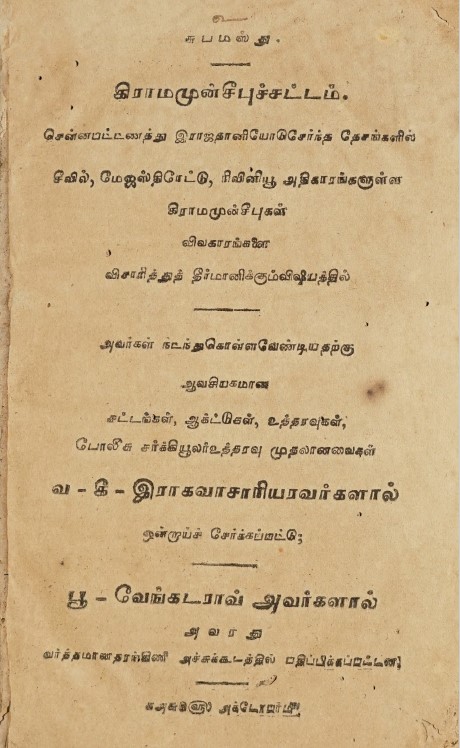 உ
சுபமஸ்து.
கிராமமுன்சீபுச்சட்டம்.
சென்னபட்டணத்து இராஜதானியோடுசேர்ந்த தேசங்களில்
சீவில், மேஜஸ்திரேட்டு, ரிவினியூ அதிகாரங்களுள்ள
கிராமமுன்சீபுகள்
விவகாரங்களை
விசாரித்துத் தீர்மானிக்கும்விஷயத்தில்
அவர்கள் நடந்துகொள்ளவேண்டியதற்கு
ஆவசியகமான
சட்டங்கள், ஆக்ட்டுகள், உத்தரவுகள்,
போலீசு சர்க்கியூலர்உத்தரவு முதலானவைகள்
வ - கீ - இராகவாசாரியரவர்களால்
ஒன்றாய்ச் சேர்க்கப்பட்டு;
பூ - வேங்கடராவ் அவர்களால்
அவரது
வர்த்தமானதரங்கிணி அச்சுக்கூடத்தில் பதிப்பிக்கப்பட்டன;
அக்டோபர்மீ